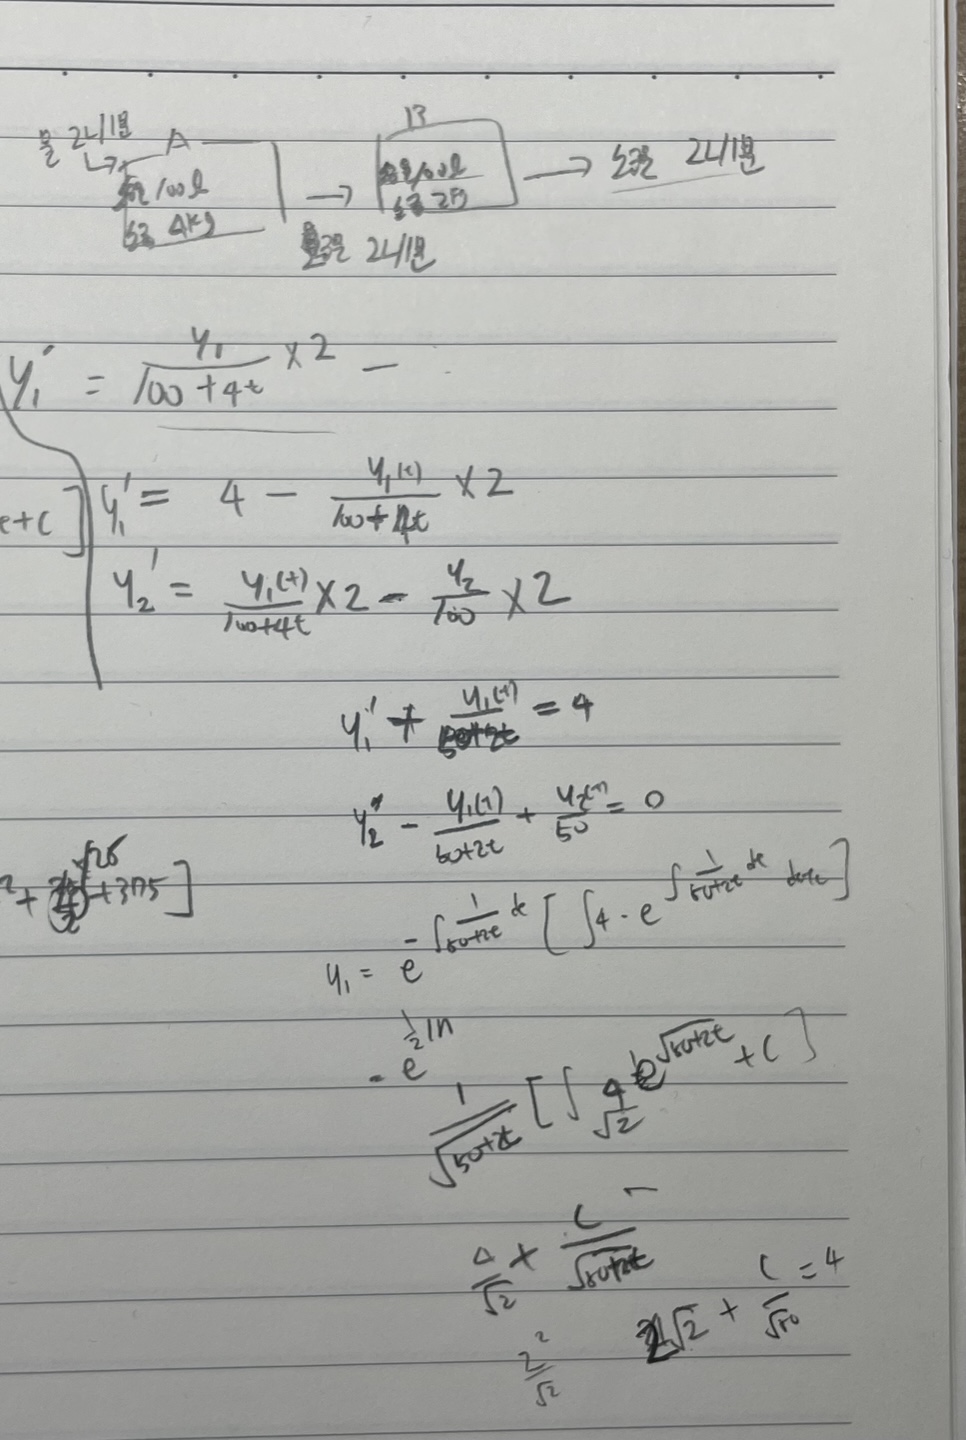 물 2L/1분 A
B
물 100l
소금 4kg
100l
소금 2
→ 소금물 2L/1분
소금물 2L/1분
y₁' = y₁/(100+4t) × 2 −
t+C]
y₁' = 4 − y₁(t)/(100+4t) × 2
y₂' = y₁(t)/(100+4t) × 2 − y₂/100 × 2
y₁' + y₁(t)/(50+2t) = 4
y₂' − y₁(t)/(50+2t) + y₂(t)/50 = 0
+375]
y₁ = e^(−∫1/(50+2t) dt) [∫4·e^(∫1/(50+2t) dt) dt+c]
= e^(½ ln
1/√(50+2t) [∫ 4/√2 e^√(50+2t) + C]
4/√2 + C/√(50+2t)
2²/√2
2√2 + C/√50 = 4